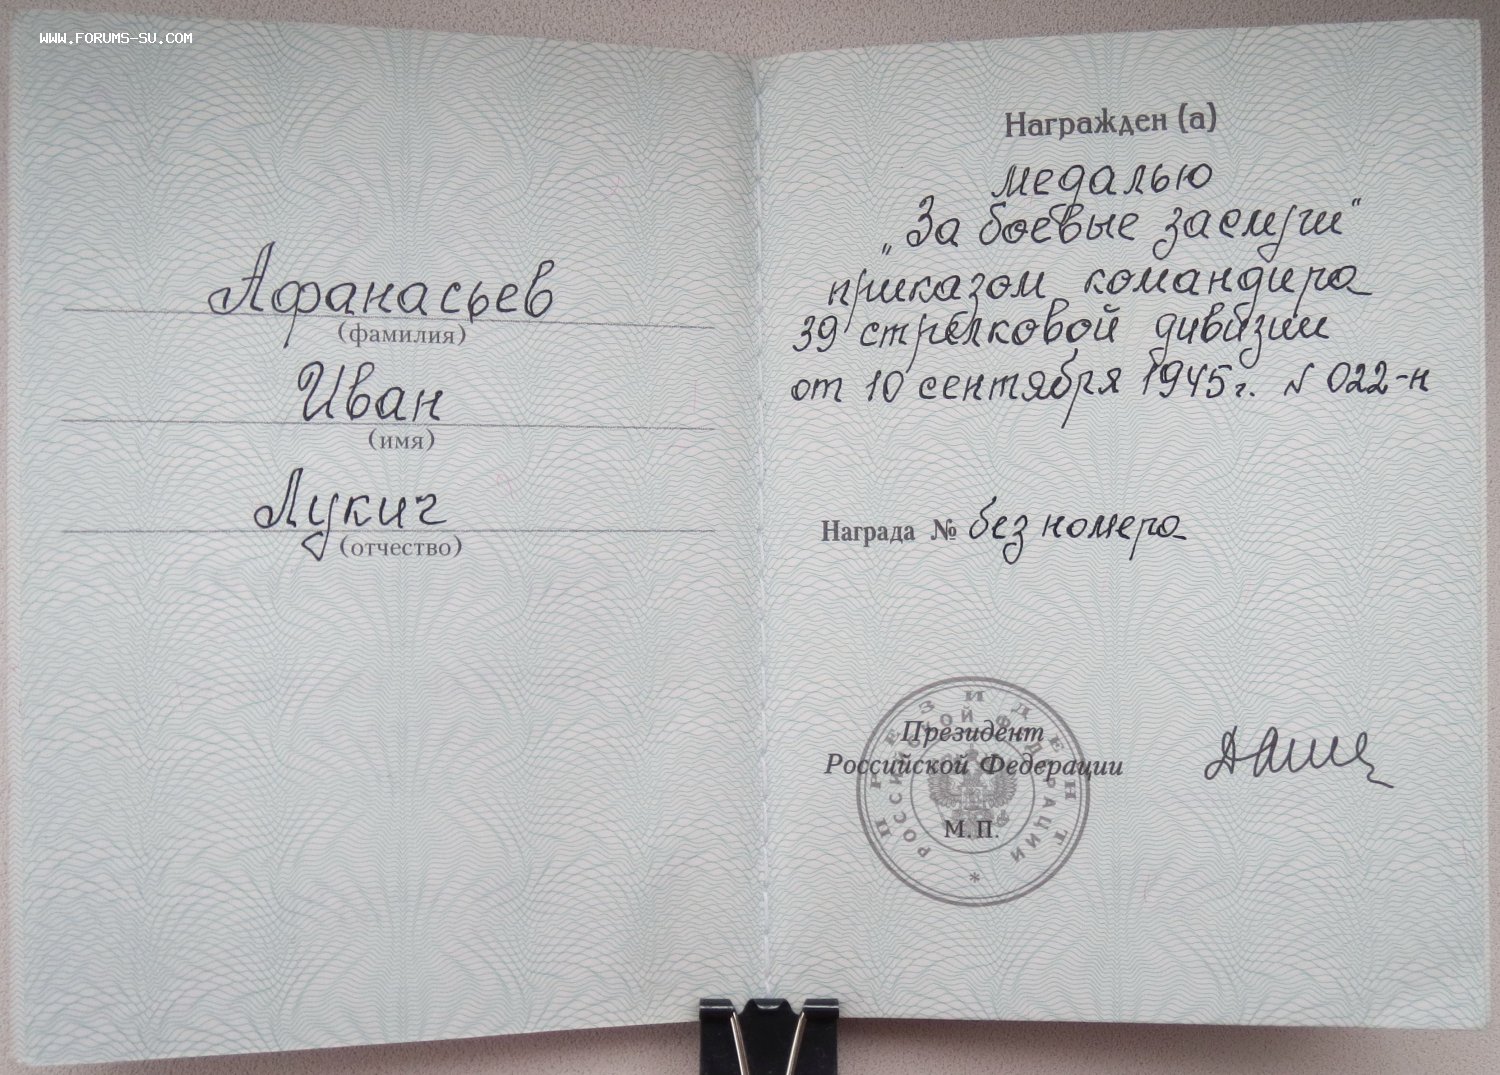 WWW.FORUMS-SU.COM
Афанасьев
(фамилия)
Иван
(имя)
Лукич
(отчество)
Награжден (а)
медалью
„За боевые заслуги“
приказом командира
39 стрелковой дивизии
от 10 сентября 1945г. N 022-н
Награда № без номера
Президент
Российской Федерации
М.П.
ПРЕЗИДЕНТ
РОССИЙСКОЙ ФЕДЕРАЦИИ